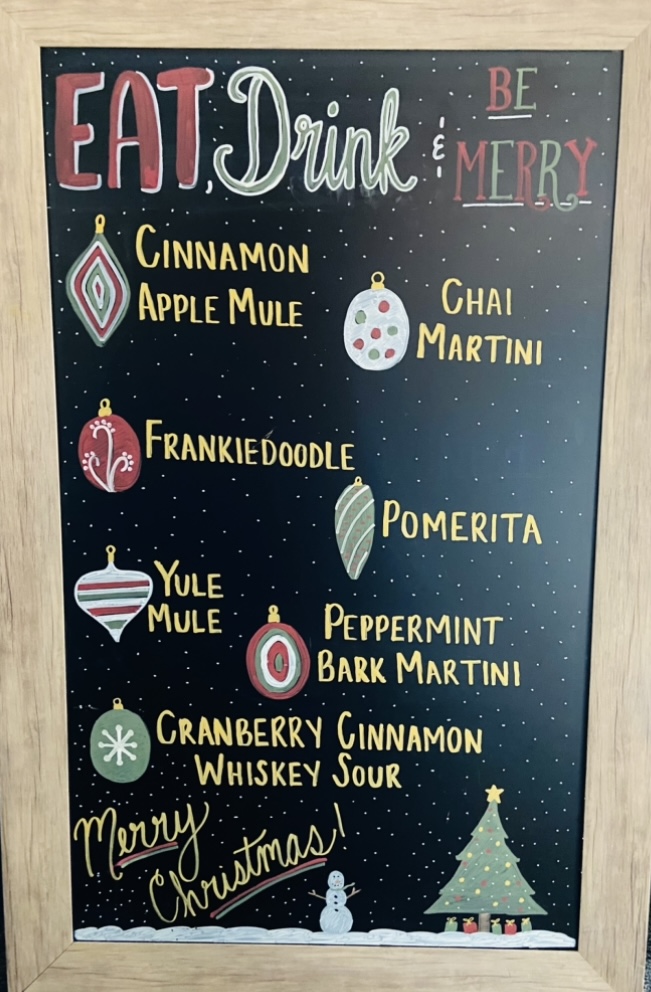 EAT, Drink & BE
MERRY
CINNAMON
APPLE MULE
CHAI
MARTINI
FRANKIEDOODLE
POMERITA
YULE
MULE
PEPPERMINT
BARK MARTINI
CRANBERRY CINNAMON
WHISKEY SOUR
Merry
Christmas!